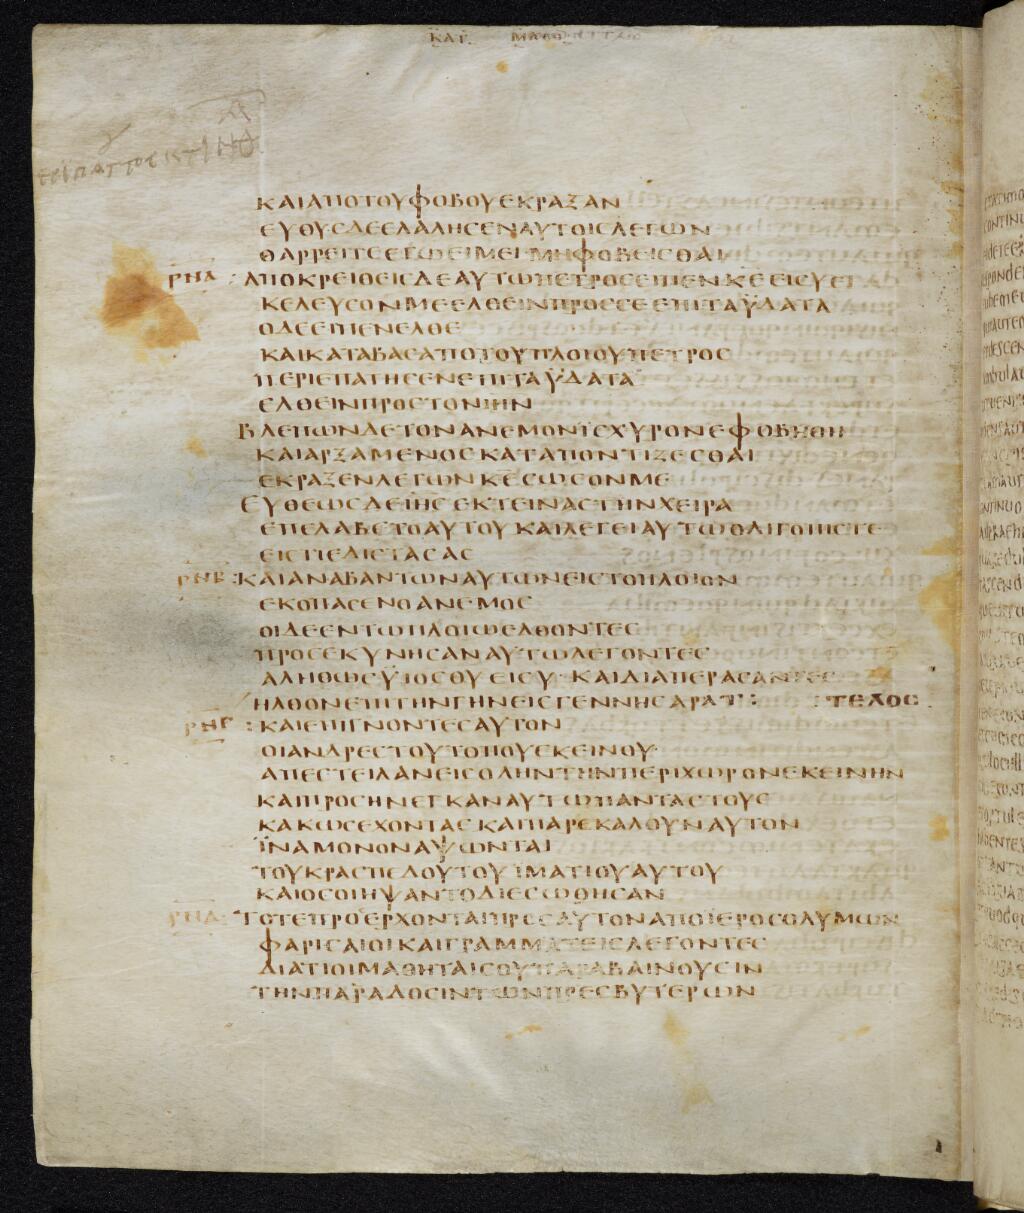 ΚΑΤ ΜΑΘΘ
ΚΑΙΑΠΟΤΟΥΦΟΒΟΥΕΚΡΑΞΑΝ
ΕΥΘΥΣΔΕΕΛΑΛΗΣΕΝΑΥΤΟΙΣΛΕΓΩΝ
ΘΑΡΡΕΙΤΕΕΓΩΕΙΜΕΙΜΗΦΟΒΕΙΣΘΑΙ
ΡΝΑ : ΑΠΟΚΡΕΙΘΕΙΣΔΕΑΥΤΩΠΕΤΡΟΣΕΙΠΕΝΚΕΕΙΣΥΕΙ
ΚΕΛΕΥΣΟΝΜΕΕΛΘΕΙΝΠΡΟΣΣΕΕΠΙΤΑΫΔΑΤΑ
ΟΔΕΕΙΠΕΝΕΛΘΕ
ΚΑΙΚΑΤΑΒΑΣΑΠΟΤΟΥΠΛΟΙΟΥΠΕΤΡΟΣ
ΠΕΡΙΕΠΑΤΗΣΕΝΕΠΙΤΑΫΔΑΤΑ
ΕΛΘΕΙΝΠΡΟΣΤΟΝΙΗΝ
ΒΛΕΠΩΝΔΕΤΟΝΑΝΕΜΟΝΙΣΧΥΡΟΝΕΦΟΒΗΘΗ
ΚΑΙΑΡΞΑΜΕΝΟΣΚΑΤΑΠΟΝΤΙΖΕΣΘΑΙ
ΕΚΡΑΞΕΝΛΕΓΩΝΚΕΣΩΣΟΝΜΕ
ΕΥΘΕΩΣΔΕΙΗΣΕΚΤΕΙΝΑΣΤΗΝΧΕΙΡΑ
ΕΠΕΛΑΒΕΤΟΑΥΤΟΥΚΑΙΛΕΓΕΙΑΥΤΩΟΛΙΓΟΠΙΣΤΕ
ΕΙΣΤΙΕΔΙΣΤΑΣΑΣ
ΡΝΒ :ΚΑΙΑΝΑΒΑΝΤΩΝΑΥΤΩΝΕΙΣΤΟΠΛΟΙΟΝ
ΕΚΟΠΑΣΕΝΟΑΝΕΜΟΣ
ΟΙΔΕΕΝΤΩΠΛΟΙΩΕΛΘΟΝΤΕΣ
ΠΡΟΣΕΚΥΝΗΣΑΝΑΥΤΩΛΕΓΟΝΤΕΣ
ΑΛΗΘΩΣΫΙΟΣΘΥΕΙΣΥ·ΚΑΙΔΙΑΠΕΡΑΣΑΝΤΕΣ
ΗΛΘΟΝΕΠΙΤΗΝΓΗΝΕΙΣΓΕΝΝΗΣΑΡΑΤ : : ΤΕΛΟΣ
ΡΝΓ : ΚΑΙΕΠΙΓΝΟΝΤΕΣΑΥΤΟΝ
ΟΙΑΝΔΡΕΣΤΟΥΤΟΠΟΥΕΚΕΙΝΟΥ·
ΑΠΕΣΤΕΙΛΑΝΕΙΣΟΛΗΝΤΗΝΠΕΡΙΧΩΡΟΝΕΚΕΙΝΗΝ
ΚΑΙΠΡΟΣΗΝΕΓΚΑΝΑΥΤΩΠΑΝΤΑΣΤΟΥΣ
ΚΑΚΩΣΕΧΟΝΤΑΣΚΑΙΠΑΡΕΚΑΛΟΥΝΑΥΤΟΝ
ΪΝΑΜΟΝΟΝΑΨΩΝΤΑΙ
ΤΟΥΚΡΑΣΠΕΔΟΥΤΟΥΪΜΑΤΙΟΥΑΥΤΟΥ
ΚΑΙΟΣΟΙΗΨΑΝΤΟΔΙΕΣΩΘΗΣΑΝ
ΡΝΔ: ΤΟΤΕΠΡΟΣΕΡΧΟΝΤΑΙΠΡΟΣΑΥΤΟΝΑΠΟΪΕΡΟΣΟΛΥΜΩΝ
ΦΑΡΙΣΑΙΟΙΚΑΙΓΡΑΜΜΑΤΕΙΣΛΕΓΟΝΤΕΣ
ΔΙΑΤΙΟΙΜΑΘΗΤΑΙΣΟΥΠΑΡΑΒΑΙΝΟΥΣΙΝ
ΤΗΝΠΑΡΑΔΟΣΙΝΤΩΝΠΡΕΣΒΥΤΕΡΩΝ